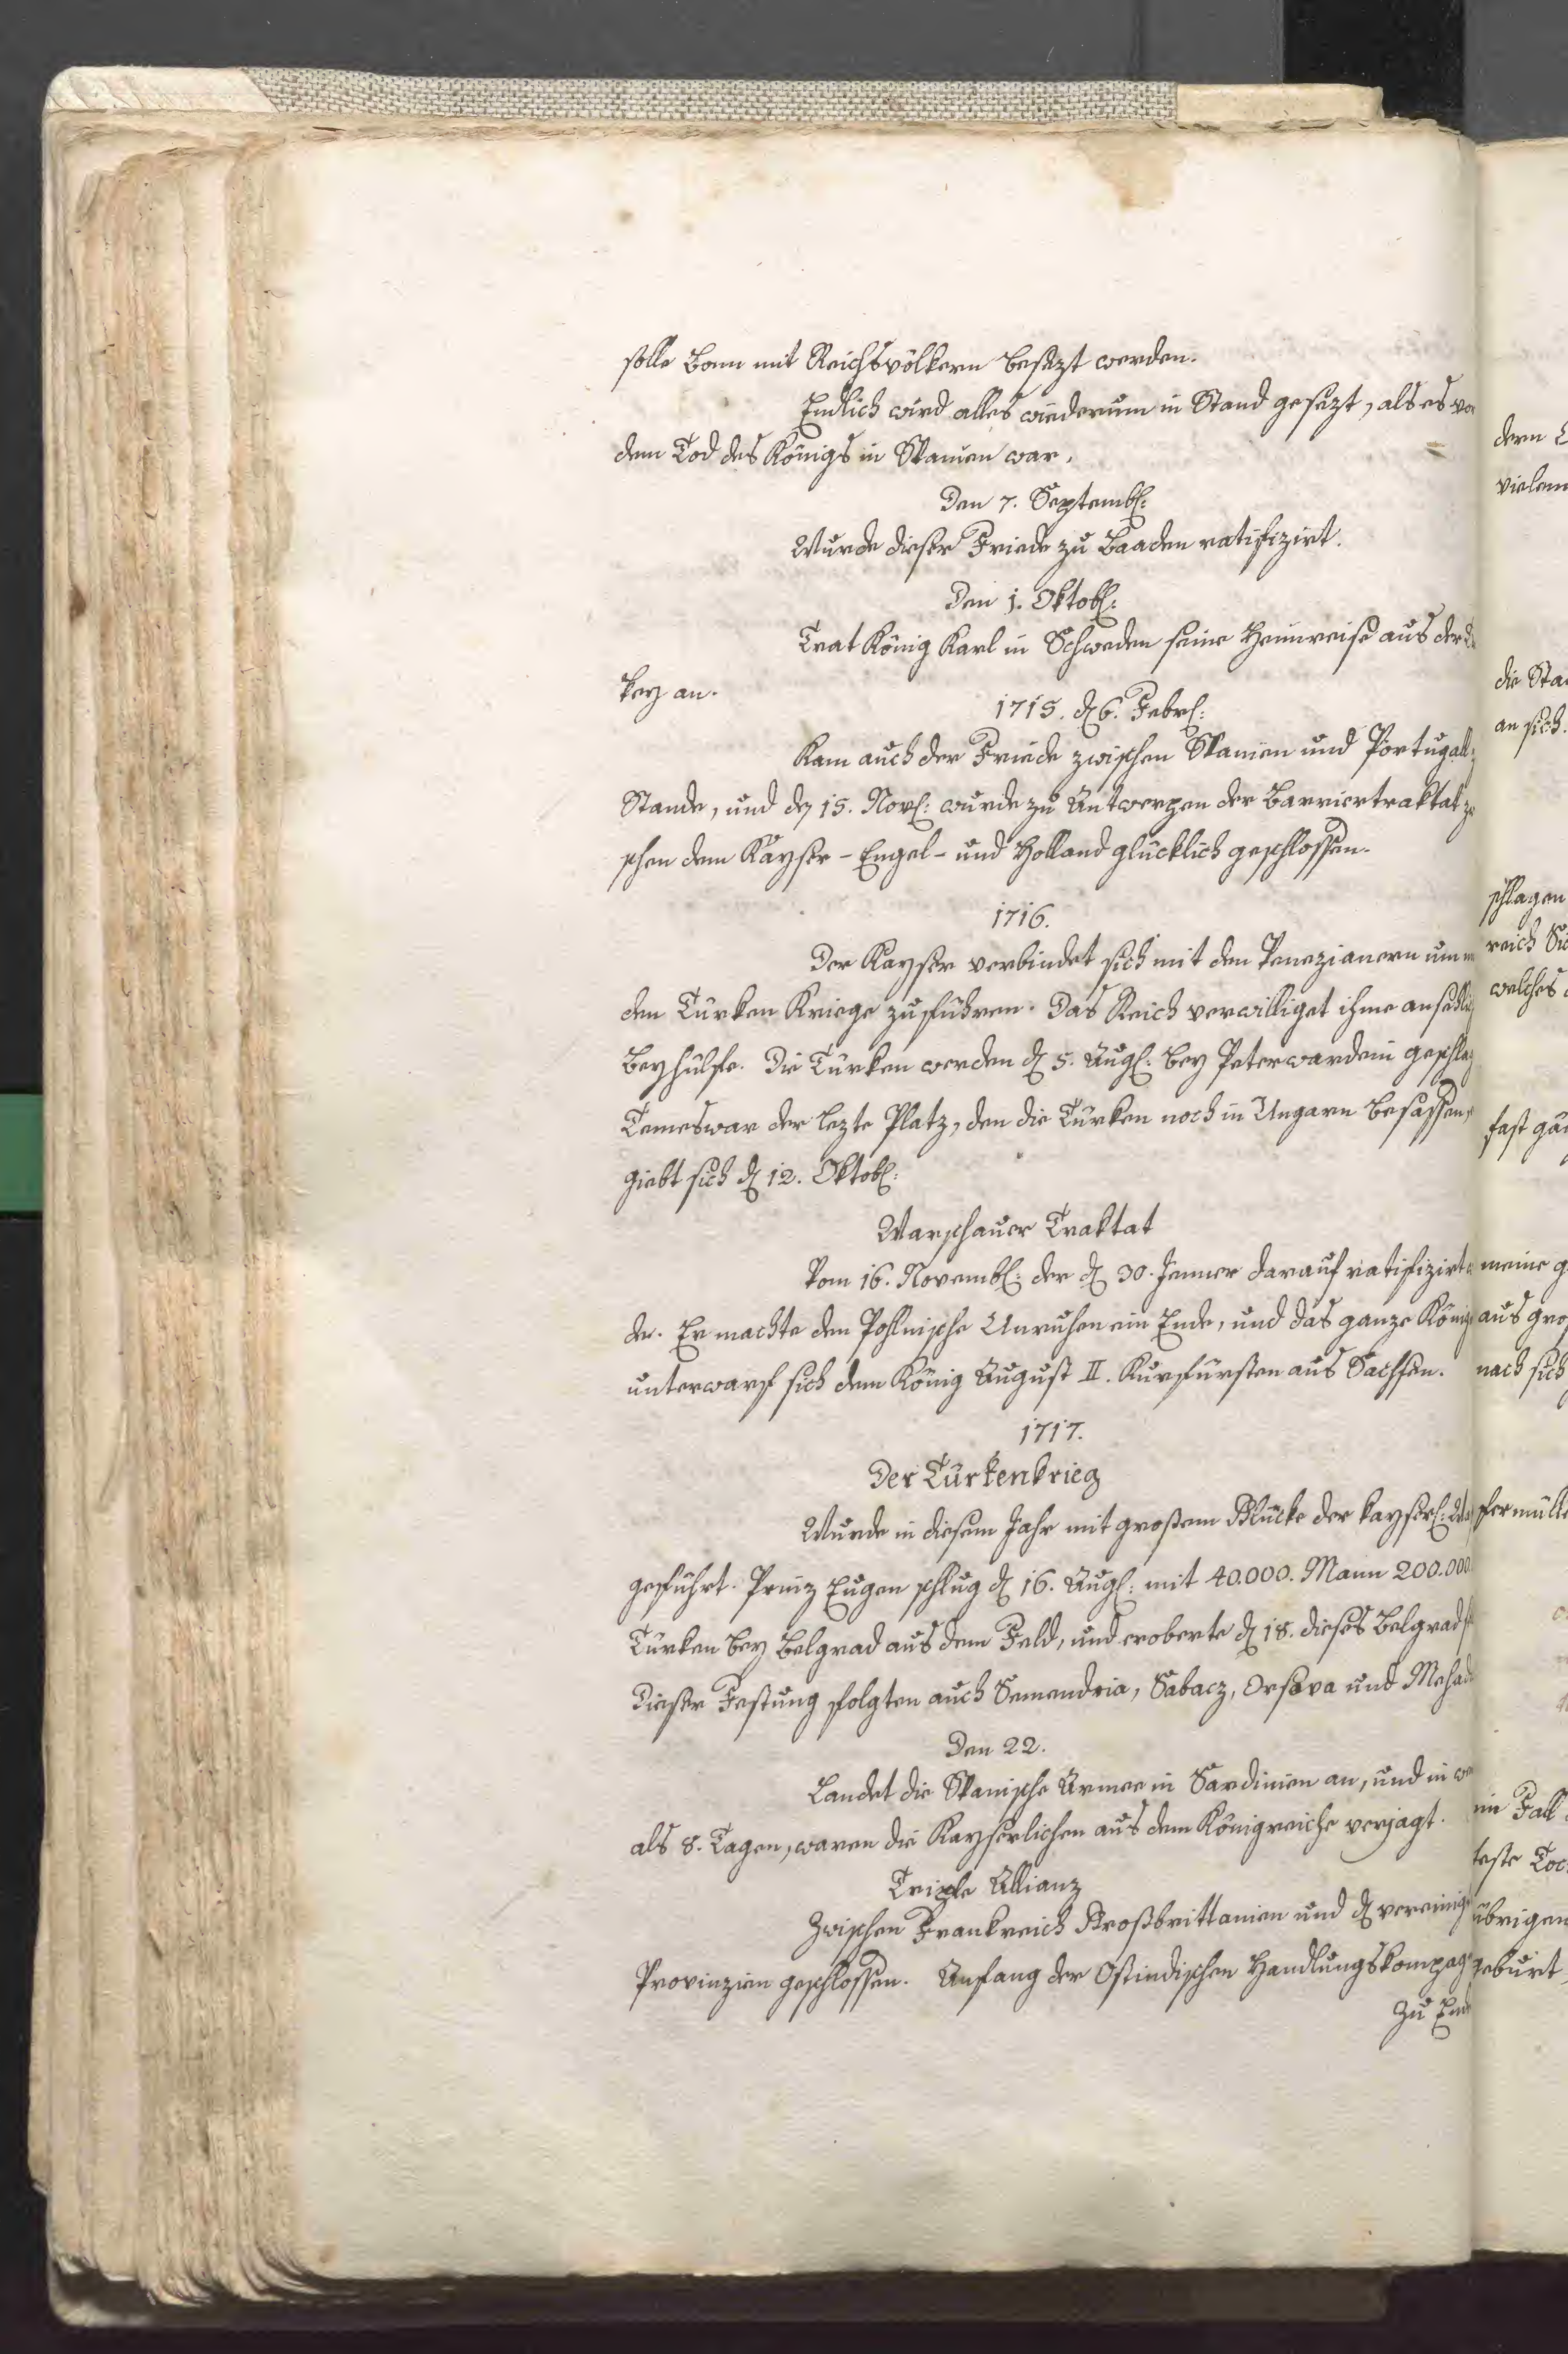 solle Bonn mit Reichsvölkern besezt werden.
Endlich wird alles wiederum in Stand gesezt, als es vor
dem Tod des Königs in Spanien war.
Den 7. Septembl:
Wurde dieser Friede zu Baaden ratifizirt.
Den 1. Oktobl:
Trat König Karl in Schweden seine Heimreise aus der
key an.
1715. d 6. Febrl:
Kam auch der Friede zwischen Spanien und Portugall
Stande, und den 15. Novl: wurde zu Antwerpen der Barriertraktat
schen dem Kayser - Engel - und Holland glücklich geschlossen.
1716.
Der Kayser verbindet sich mit den Venezianern um
den Türken Kriege zuführen. Das Reich verwilliget ihme ansehli
Beyhülfe. Die Türken werden d 5. Augl: bey Peterwardein geschla
Temeswar der lezte Platz, den die Türken noch in Ungarn besassen,
giebt sich d 12. Oktobl:
Warschauer Traktat
Vom 16. Novembl: der d 30. Jenner darauf ratifizirt
de. Er machte den Pohlnische Unruhen ein Ende, und das ganze König
unterwarf sich dem König August II. Kurfürsten aus Sachsen.
1717.
Der Türkenkrieg
Wurde in diesem Jahr mit großem Glücke der kayserl:
geführt. Prinz Eugen schlug d 16. Augl: mit 40.000. Mann 200.000
Türken bey Belgrad aus dem Feld, und eroberte d 18. dieses Belgrad
Dieser Festung folgten auch Semendria, Sabacz, Orsova und Mehad
Den 22.
Landet die Spanische Armee in Sardinien an, und in we
als 8. Tagen, waren die Kayserlichen aus dem Königreiche verjagt.
Triple Allianz
Zwischen Frankreich Großbrittanien und d vereinig
Provinzien geschlossen. Anfang der Ostindischen Handlungskompag
Zu End
dern
vielem
die Sta
an sich.
schlagen
reich Si
welches
fast gän
meine g
aus gro
nach sich
fermüll
ein Fall
teste Toc
übrigen
geburt